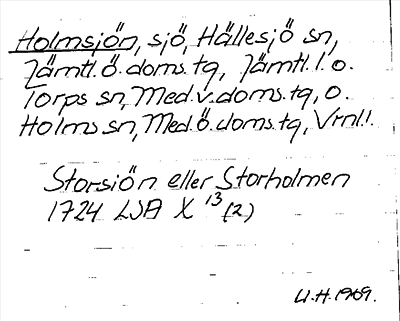 Holmsjön, sjö, Hällesjö sn,
Jämtl. ö. doms. tg, Jämtl. l. o.
Torps sn, Med. v. doms. tg, o.
Holms sn, Med. ö. doms. tg, Vrnl. l.
Storsiön eller Storholmen
1724 LSA X 13 (2)
U.H. 1969.